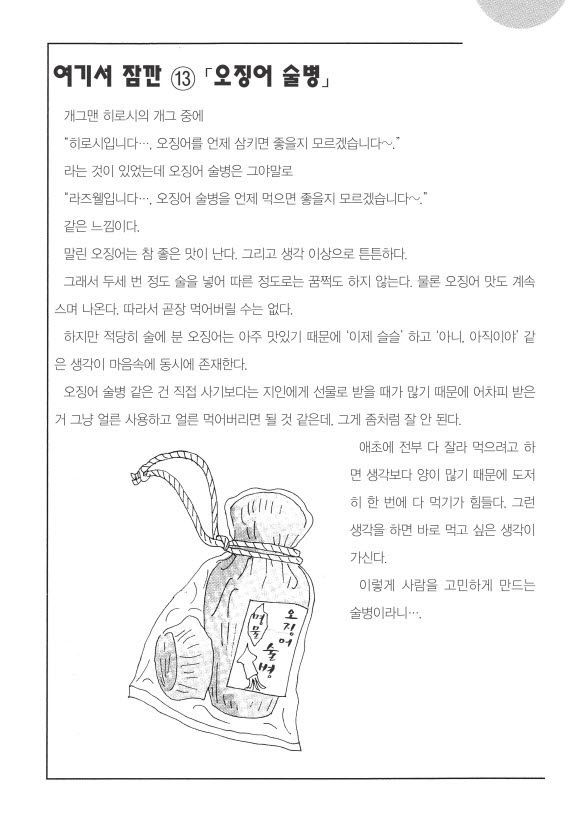 여기서 잠깐 ⑬ 「오징어 술병」
개그맨 히로시의 개그 중에
“히로시입니다…. 오징어를 언제 삼키면 좋을지 모르겠습니다~.”
라는 것이 있었는데 오징어 술병은 그야말로
“라즈웰입니다…. 오징어 술병을 언제 먹으면 좋을지 모르겠습니다~.”
같은 느낌이다.
말린 오징어는 참 좋은 맛이 난다. 그리고 생각 이상으로 튼튼하다.
그래서 두세 번 정도 술을 넣어 따른 정도로는 꿈쩍도 하지 않는다. 물론 오징어 맛도 계속
스며 나온다. 따라서 곧장 먹어버릴 수는 없다.
하지만 적당히 술에 분 오징어는 아주 맛있기 때문에 ‘이제 슬슬’ 하고 ‘아니, 아직이야’ 같
은 생각이 마음속에 동시에 존재한다.
오징어 술병 같은 건 직접 사기보다는 지인에게 선물로 받을 때가 많기 때문에 어차피 받은
거 그냥 얼른 사용하고 얼른 먹어버리면 될 것 같은데, 그게 좀처럼 잘 안 된다.
애초에 전부 다 잘라 먹으려고 하
면 생각보다 양이 많기 때문에 도저
히 한 번에 다 먹기가 힘들다. 그런
생각을 하면 바로 먹고 싶은 생각이
가신다.
이렇게 사람을 고민하게 만드는
술병이라니….
명물
오징어
술병